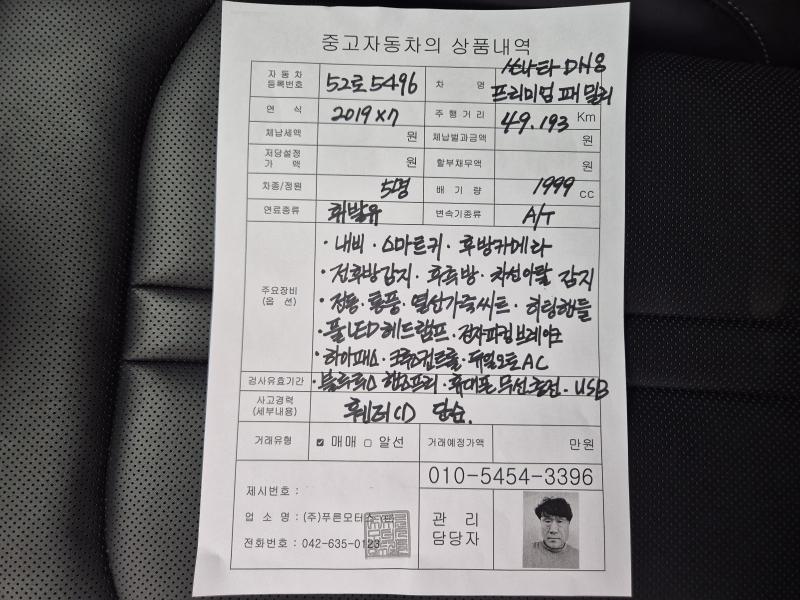 중고자동차의 상품내역
자동차 등록번호 52로5496 차 명 쏘나타 DN8 프리미엄 패밀리
연 식 2019 x 7 주행거리 49.193 Km
체납세액 원 체납벌과금액 원
저당설정 가 액 원 할부채무액 원
차종/정원 5명 배 기 량 1999 cc
연료종류 휘발유 변속기종류 A/T
주요장비 (옵 션)
· 내비 · 스마트키 · 후방카메라
· 전후방감지 · 후측방 · 차선이탈 감지
· 전동 · 통풍 · 열선가죽씨트 · 히팅핸들
· 풀LED헤드램프 · 전자파킹브레이크
· 하이패스 · 크루즈컨트롤 · 듀얼오토AC
검사유효기간 · 블루투스 핸즈프리 · 휴대폰 무선충전 · USB
사고경력 (세부내용) 휀더(1) 단순.
거래유형 ☑ 매매 □ 알선 거래예정가액 만원
010-5454-3396
제시번호 :
업 소 명 : (주)푸른모터스
전화번호 : 042-635-0123
관 리 담당자